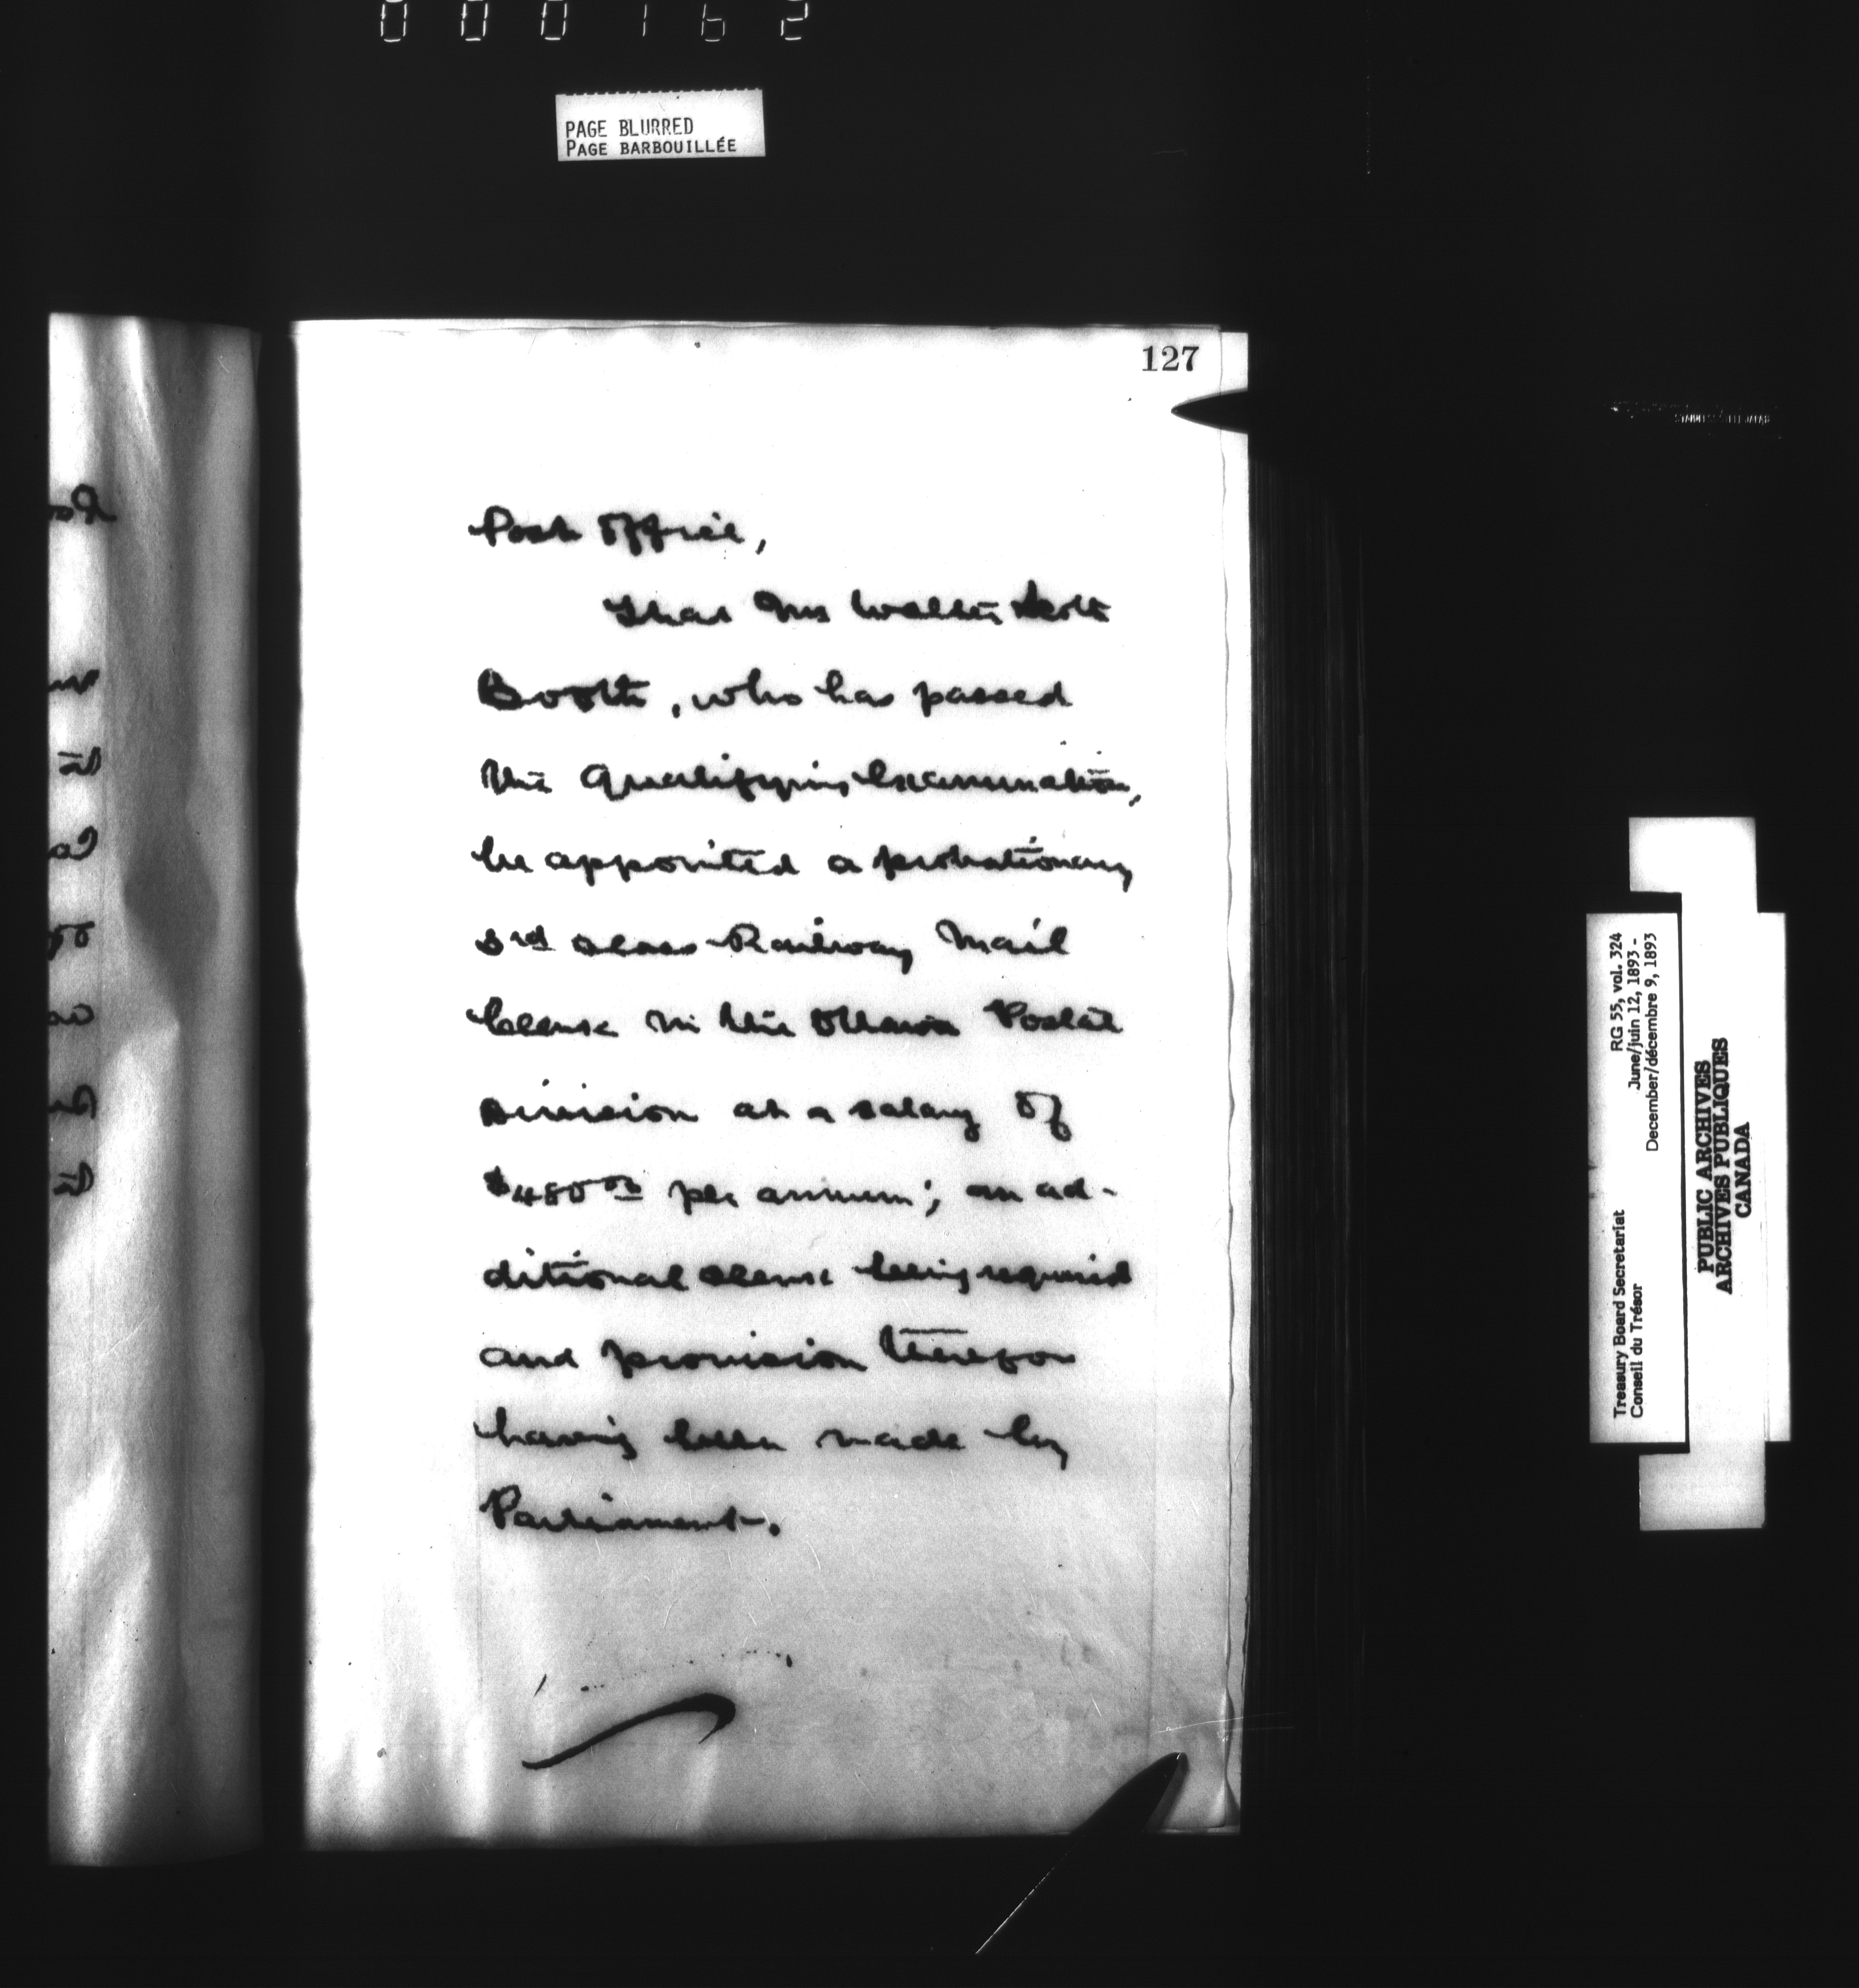 000162
PAGE BLURRED
PAGE BARBOUILLÉE
127
Post Office,
That Mr Walter Scott
Booth, who has passed
the Qualifying Examination,
be appointed a probationary
3rd class Railway Mail
Clerk in the Ottawa Postal
Division at a salary of
$480.00 per annum; an ad-
ditional clerk being required
and provision therefor
having been made by
Parliament.
Treasury Board Secretariat RG 55, vol. 324
Conseil du Trésor June/juin 12, 1893 -
December/décembre 9, 1893
PUBLIC ARCHIVES
ARCHIVES PUBLIQUES
CANADA